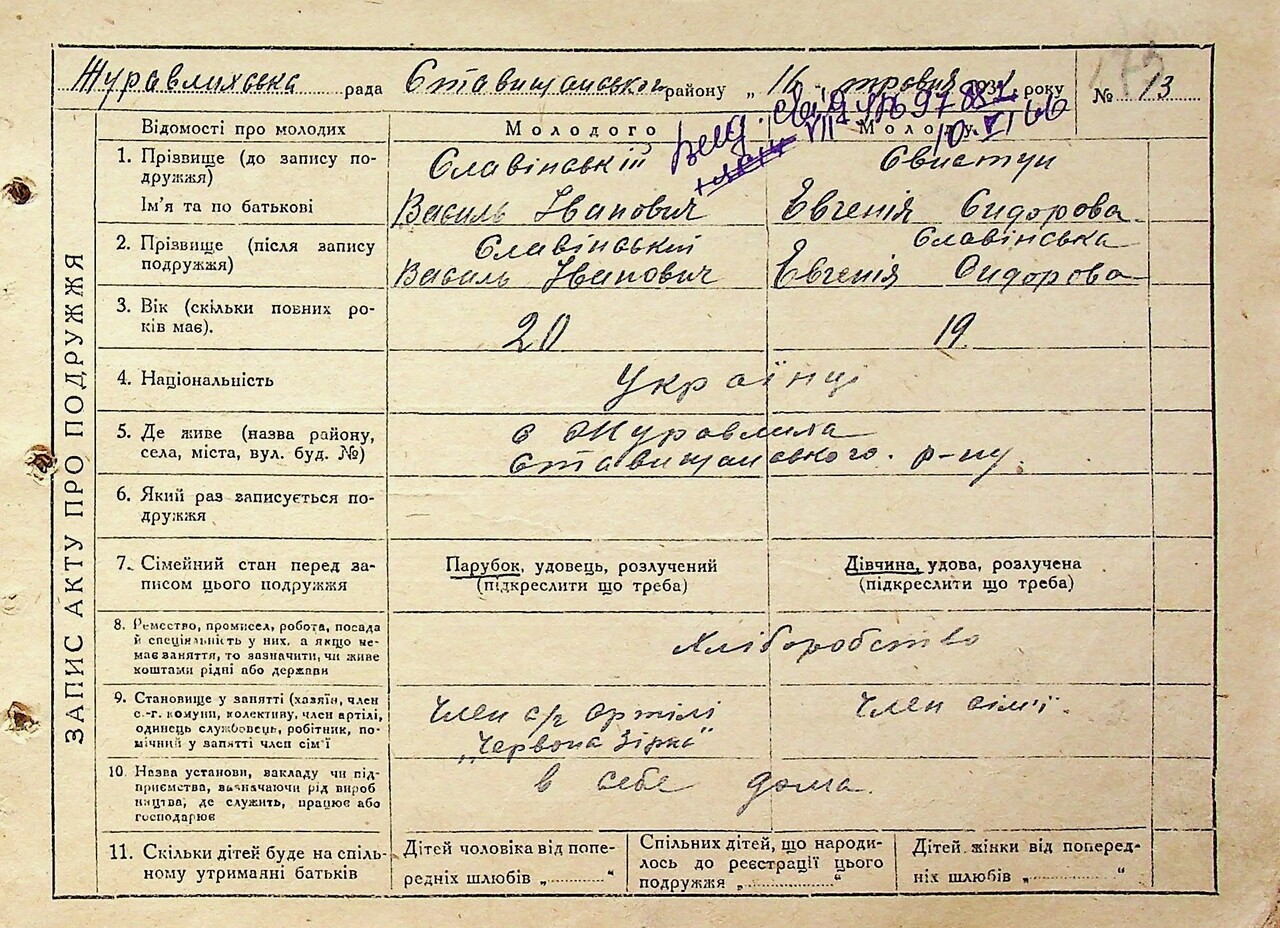 Журавлихська рада Ставищанського району „16„ травня 193 року № 13
ЗАПИС АКТУ ПРО ПОДРУЖЖЯ
Відомості про молодих Молодого Молоду
вид. VII № 97882
10 VI 66
1. Прізвище (до запису по- Славінській Свистун
дружжя)
Ім'я та по батькові Василь Іванович Евгенія Сидорова
2. Прізвище (після запису Славінський Славінська
подружжя) Василь Іванович Евгенія Сидорова
3. Вік (скільки повних ро-
ків має). 20 19
4. Національність Українці
5. Де живе (назва району, с Журавлиха
села, міста, вул. буд. №) Ставищанського р-ну.
6. Який раз записується по-
дружжя
7. Сімейний стан перед за- Парубок, удовець, розлучений Дівчина, удова, розлучена
писом цього подружжя (підкреслити що треба) (підкреслити що треба)
8. Ремество, промисел, робота, посада
й спеціяльність у них, а якщо не- Хліборобство
має заняття, то зазначити, чи живе
коштами рідні або держави
9. Становище у занятті (хазяїн, член Член с/г артілі Член сім'ї.
с.-г. комуни, колективу, член артілі,
одинець службовець, робітник, по- „Червона Зірка"
мічний у запятті член сім'ї
10. Назва установи, закладу чи під- в себе дома.
приємства, вазначаючи рід вироб
ництва, де служить, працює або
господарює
11. Скільки дітей буде на спіль- Дітей чоловіка від попе- Спільних дітей, що народи- Дітей жінки від поперед-
ному утриманні батьків редніх шлюбів „ “ лось до реєстрації цього ніх шлюбів „ “
подружжя „ “